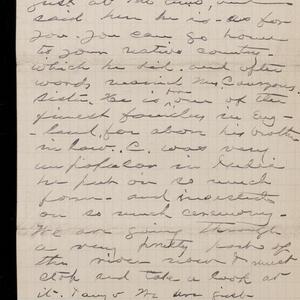 just at the
said him he is - as for
you. you can go home
to your native country -
which he did - and after
words married Mrs.
Sister. He is now one of the
finest families in Eng
land, far above his brother
in law. C. was very
unpopular in India
he put on so much
form - and insisted
on so much ceremony -
We are going through
a very pretty part of
the river now & must
stop and take a look at
it. We are just